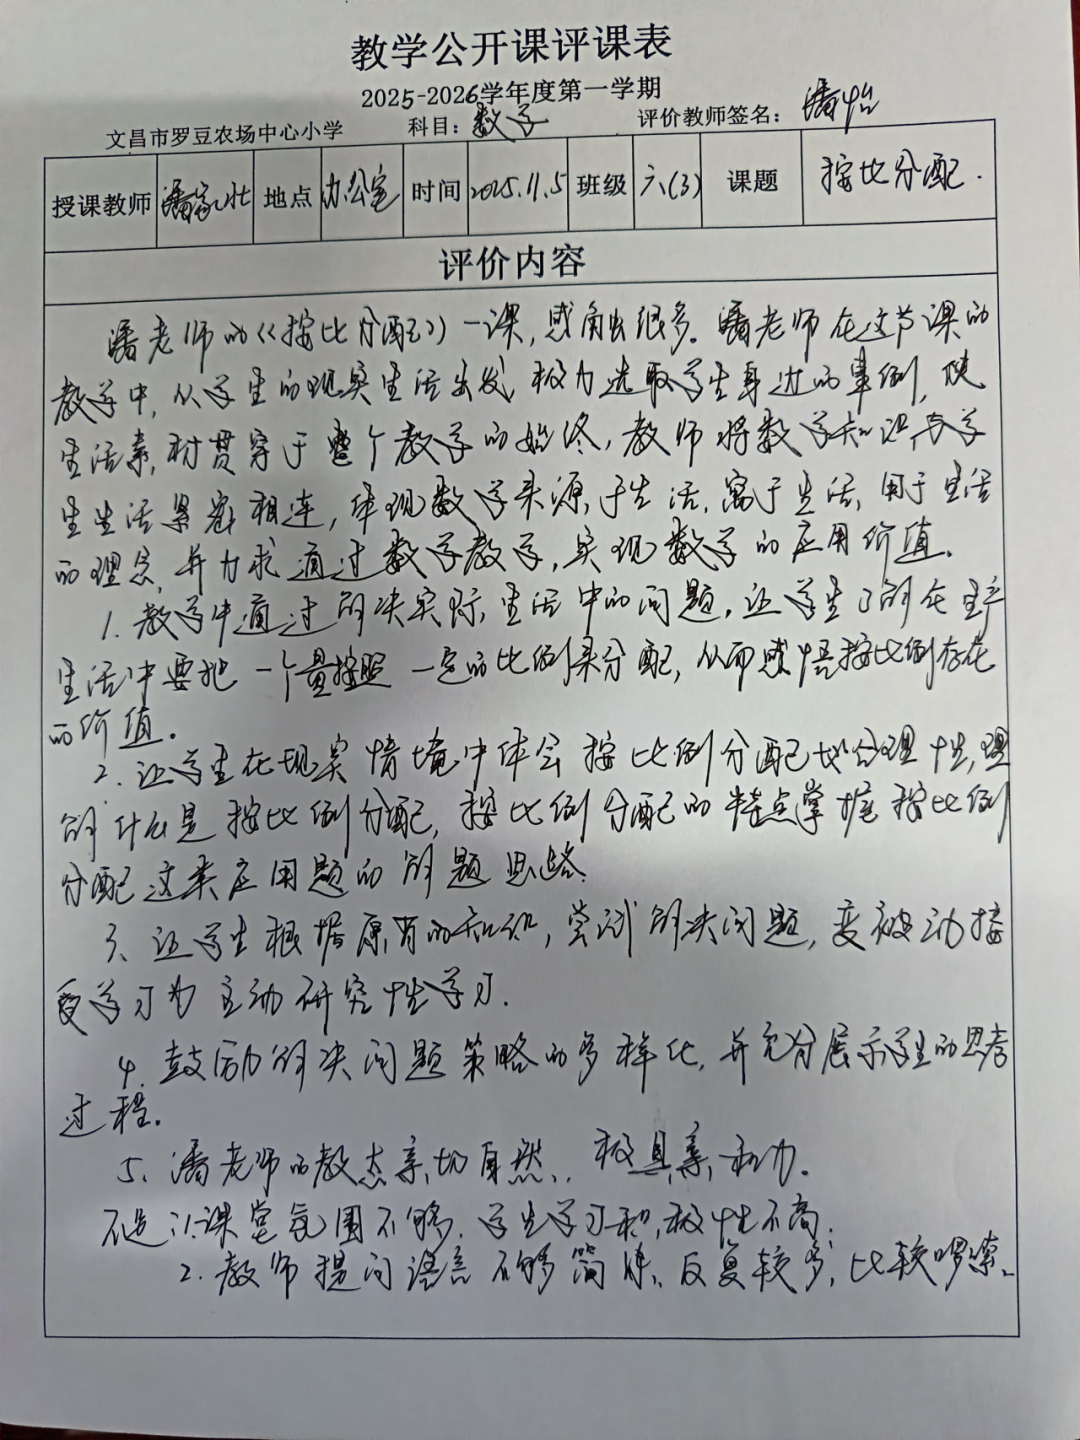 教学公开课评课表
2025-2026学年度第一学期
文昌市罗豆农场中心小学 科目：数学 评价教师签名：潘怡
授课教师 潘家壮 地点 办公室 时间 2025.11.5 班级 六(3) 课题 按比分配.
评价内容
潘老师的《按比分配》一课，感触很多。潘老师在这节课的
教学中，从学生的现实生活出发，极力选取学生身边的事例，使
生活素材贯穿于整个教学的始终，教师将数学知识与学
生生活紧密相连，体现数学来源于生活，寓于生活，用于生活
的理念，并力求通过数学教学，实现数学的应用价值。
1. 教学中通过解决实际生活中的问题，让学生了解在生产
生活中要把一个量按照一定的比例来分配，从而感悟按比例存在
的价值。
2. 让学生在现实情境中体会按比例分配的合理性，理
解什么是按比例分配，按比例分配的特点掌握按比例
分配这类应用题的解题思路.
3、让学生根据原有的知识，尝试解决问题，变被动接
受学习为主动研究性学习.
4. 鼓励解决问题策略的多样化，并充分展示学生的思考
过程。
5、潘老师的教态亲切自然，极具亲和力.
不足:1.课堂氛围不够，学生学习积极性不高.
2. 教师提问语言不够简炼、反复较多，比较啰嗦。